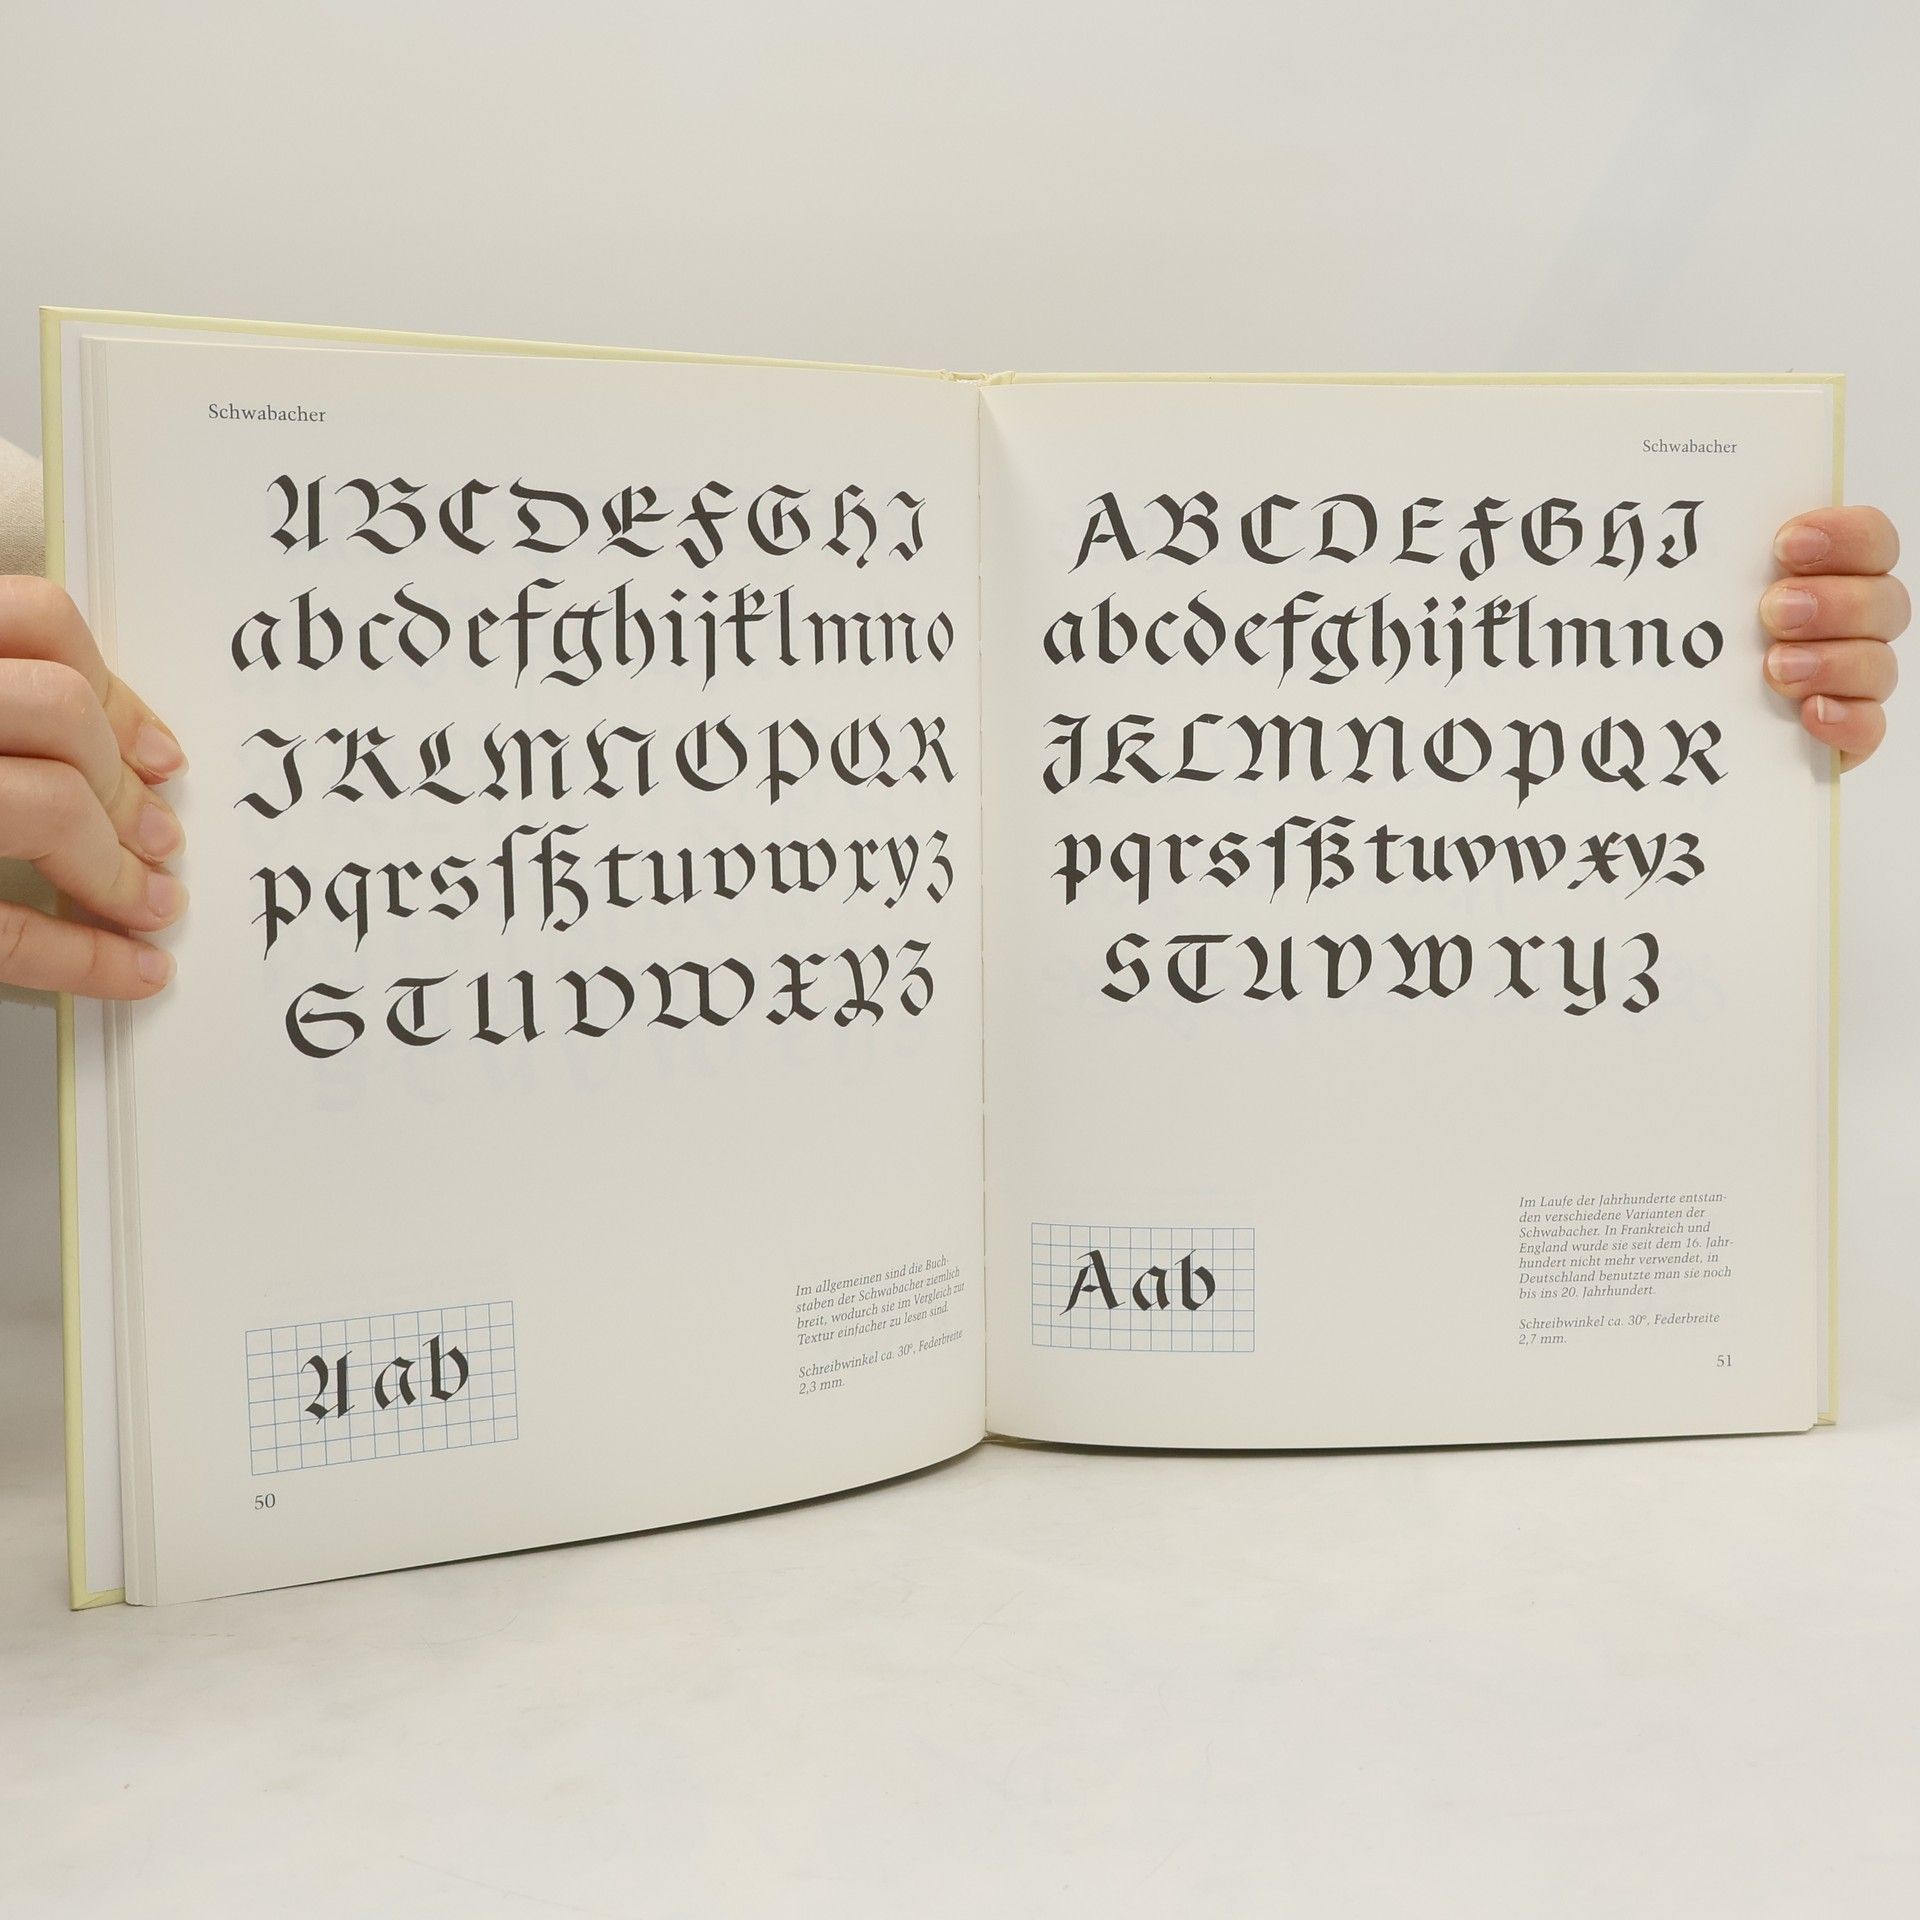 Schwabacher
ABCDEFGHI
abcdefghijklmno
JKLMNOPQR
pqrsſßtuvwxyz
STUVWXYZ
Aab
Im allgemeinen sind die Buch-
staben der Schwabacher ziemlich
breit, wodurch sie im Vergleich zur
Textur einfacher zu lesen sind.
Schreibwinkel ca. 30°, Federbreite
2,3 mm.
50
Schwabacher
ABCDEFGHI
abcdefghijklmno
JKLMNOPQR
pqrsſßtuvwxyz
STUVWXYZ
Aab
Im Laufe der Jahrhunderte entstan-
den verschiedene Varianten der
Schwabacher. In Frankreich und
England wurde sie seit dem 16. Jahr-
hundert nicht mehr verwendet, in
Deutschland benutzte man sie noch
bis ins 20. Jahrhundert.
Schreibwinkel ca. 30°, Federbreite
2,7 mm.
51